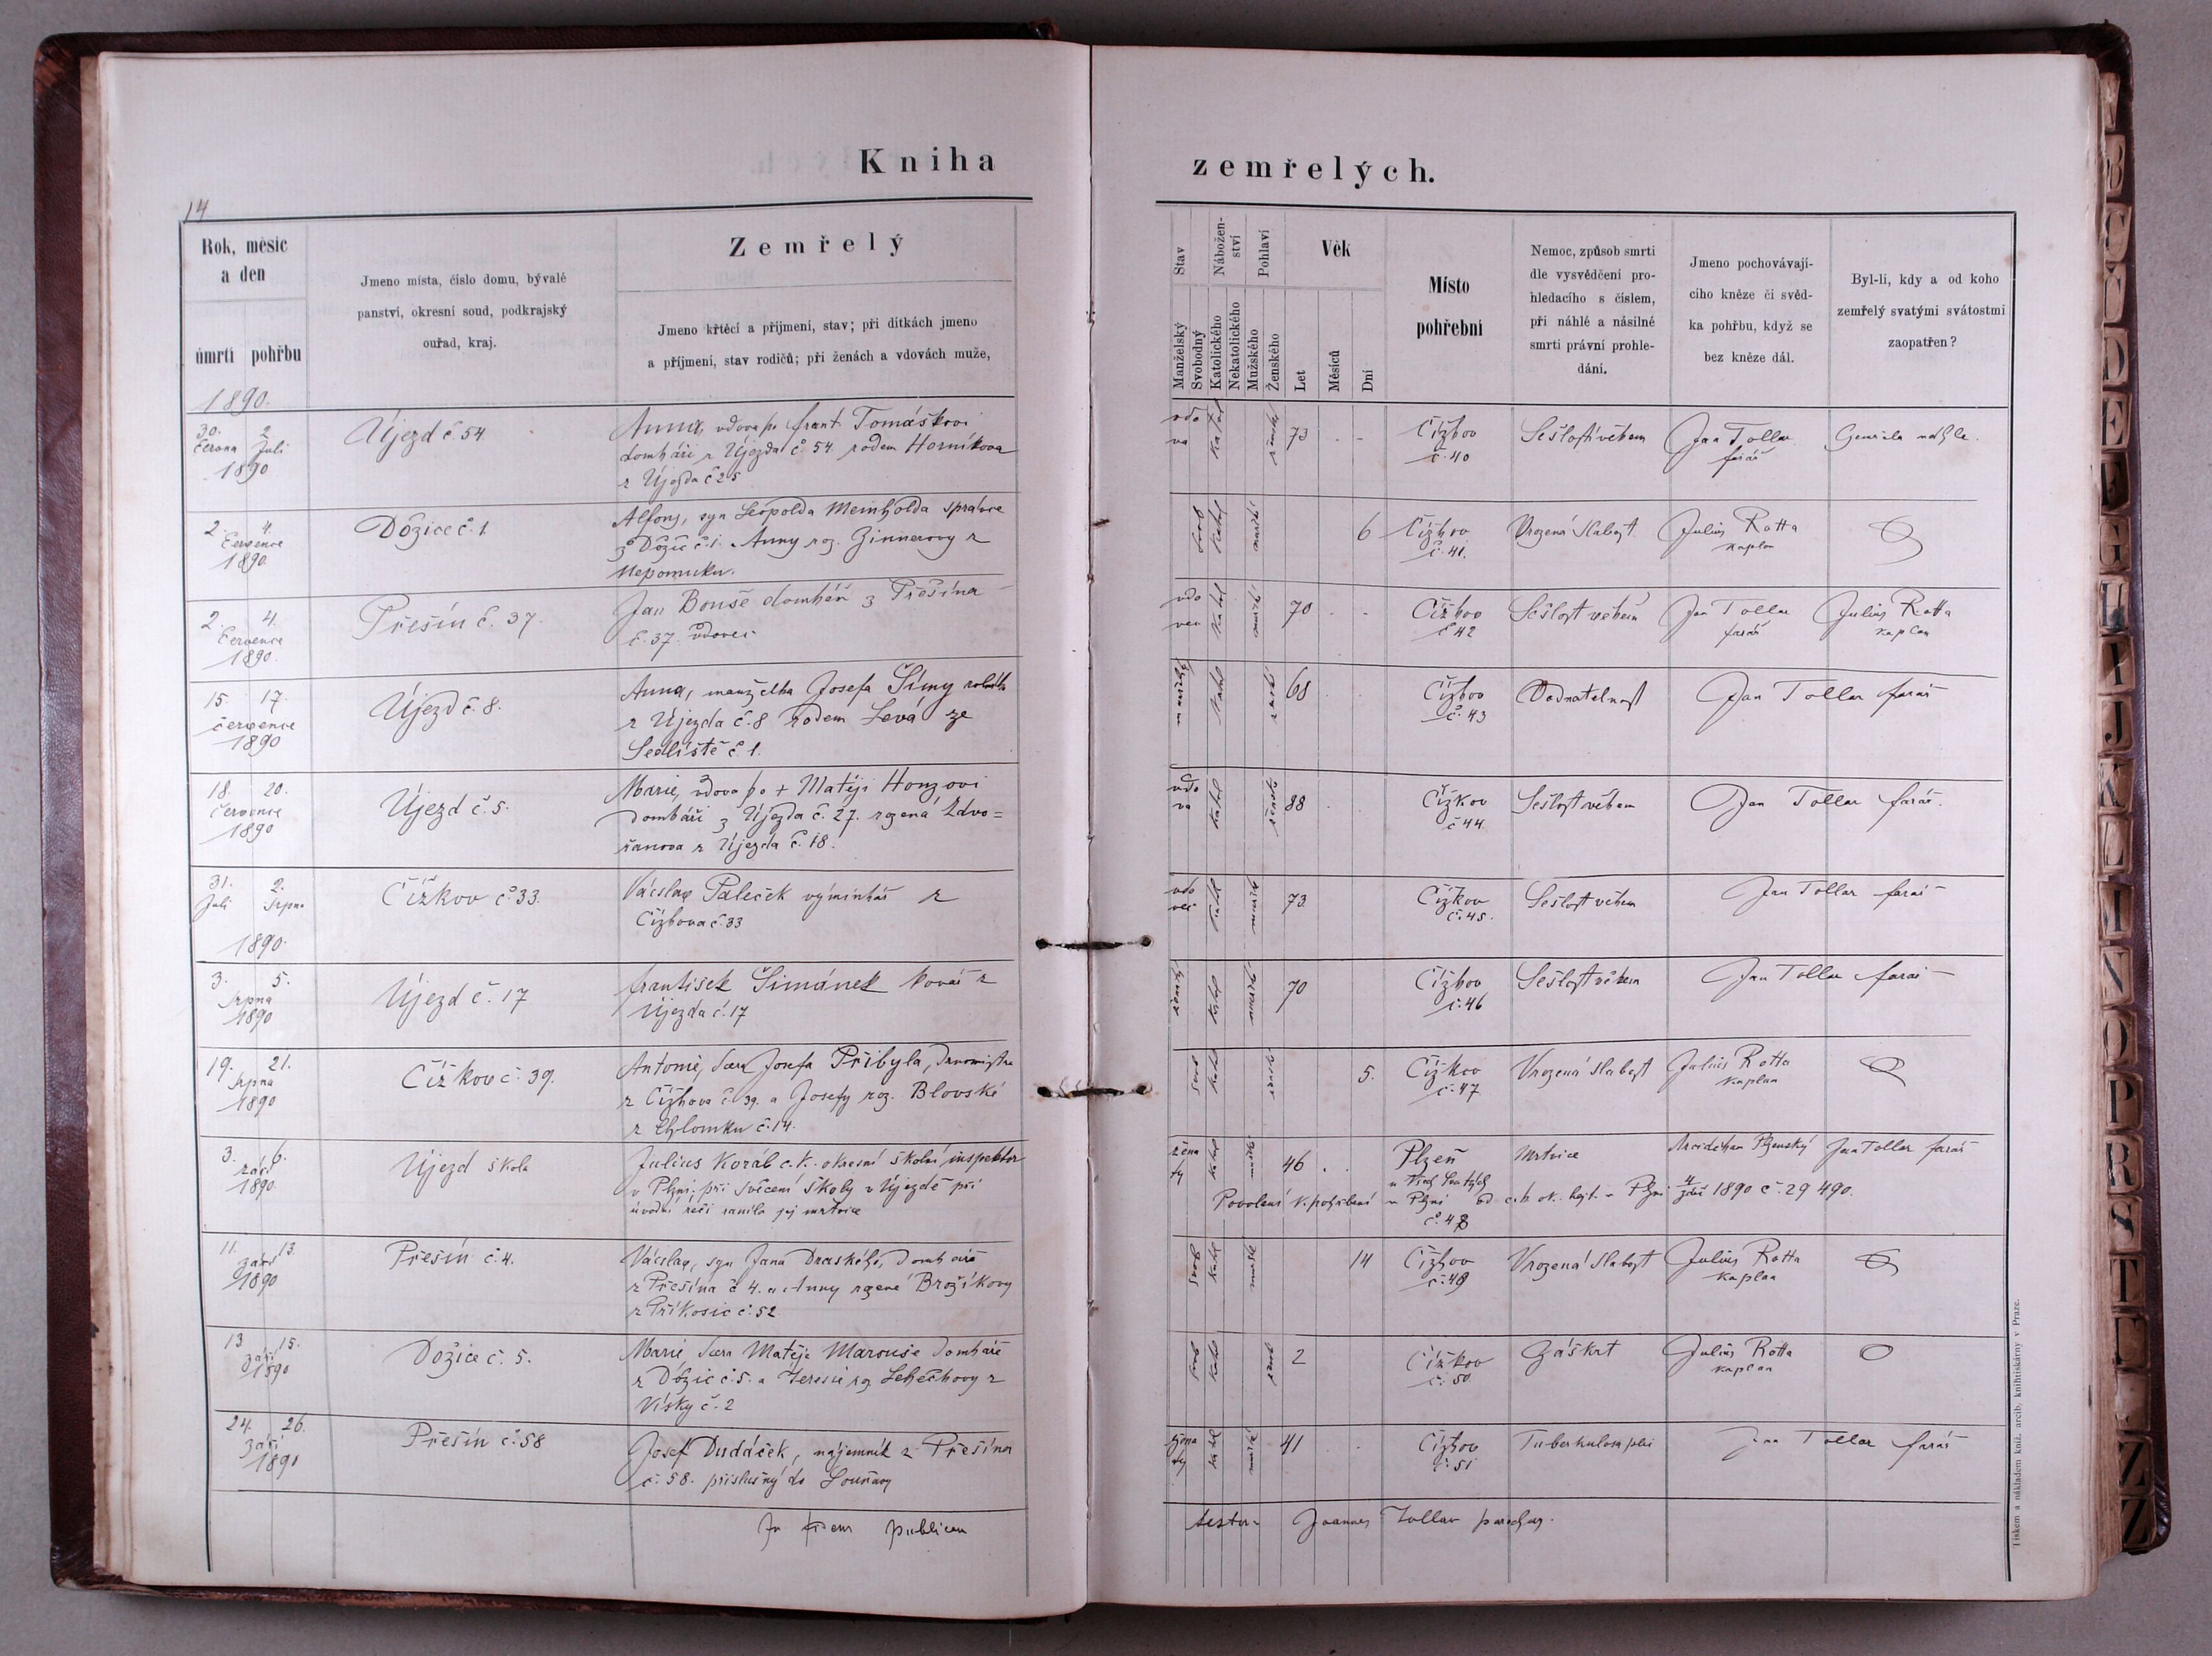 Kniha zemřelých.
14
Rok, měsíc
a den
úmrtí pohřbu
Jmeno místa, číslo domu, bývalé
panství, okresní soud, podkrajský
ouřad, kraj.
Zemřelý
Jmeno křtěcí a příjmení, stav; při dítkách jmeno
a příjmení, stav rodičů; při ženách a vdovách muže,
Stav
Manželský
Svobodný
Nábožen-
ství
Katolického
Nekatolického
Pohlaví
Mužského
Ženského
Věk
Let
Měsíců
Dní
Místo
pohřební
Nemoc, způsob smrti
dle vysvědčení pro-
hledacího s číslem,
při náhlé a násilné
smrti právní prohle-
dání.
Jmeno pochovávají-
cího kněze či svěd-
ka pohřbu, když se
bez kněze dál.
Byl-li, kdy a od koho
zemřelý svatými svátostmi
zaopatřen?
1890.
30. 2
Června Juli
1890
Újezd č 54.
Anna, vdova po frant. Tomáškovi
domkáři z Újezda č 54. rodem Horníkova
z Újezda č 25
vdo
va
katol
ženské
73 - -
Čížkov
č. 40
Sešlost věkem
Jan Tollar
farář
2. 4.
Července
1890.
Dožice č. 1.
Alfons, syn Leopolda Meinholda správce
z Dožic č. 1. Anny roz. Zinnerovy z
Nepomuku.
svob
katol
mužské
6
Čížkov
č. 41.
Vrozená slabost.
Julius Rotta
kaplan
2. 4.
Července
1890.
Přešín č. 37.
Jan Bouše domkář z Přešína
č. 37. vdovec
vdo
vec
katol
mužské
70 - -
Čížkov
č 42
Sešlost věkem
Jan Tollar
farář
Julius Rotta
kaplan
15. 17.
července
1890
Újezd č. 8.
Anna, manželka Josefa Šímy rolníka
z Újezda č. 8 rodem Levá ze
Sedliště č. 1.
katol
ženské
68
Čížkov
č. 43
Vodnatelnost
Jan Tollar farář
18. 20.
července
1890
Újezd č. 5.
Marie, vdova po + Matěji Honzovi
domkáři z Újezda č. 27. rozená Zdvo=
řanova z Újezda č. 18.
vdo
va
katol
ženské
88
Čížkov
č 44.
Sešlost věkem
Jan Tollar farář.
31. 2.
Juli Srpna
1890.
Čížkov č. 33.
Václav Paleček výminkář z
Čížkova č. 33
vdo
vec
katol
mužské
73
Čížkov
č. 45.
Sešlost věkem
Jan Tollar farář
3. 5.
Srpna
1890
Újezd č. 17
František Šimánek kovář z
Újezda č. 17
ženatý
katol
mužské
70
Čížkov
č. 46
Sešlost věkem
Jan Tollar farář
19. 21.
Srpna
1890
Čížkov č. 39.
Antonie, dcera Josefa Přibyla,
z Čížkova č. 39. a Josefy roz. Blovské
z Chlomku č. 14.
svob
katol
ženské
5.
Čížkov
č. 47
Vrozená slabost
Julius Rotta
kaplan
3. 6.
září
1890.
Újezd škola
Julius Koráb c. k. okresní školní inspektor
v Plzni; při svěcení školy v Újezdě při
úvodní řeči ranila jej mrtvice
žena
tý
katol
mužské
46 . .
Plzeň
u Všech Svatých
v Plzni
č. 48
Mrtvice
Arciděkan Plzenský
Jan Tollar farář
Povolení k pohřbení od c. k. ok. hejt. v Plzni 4 září 1890 č. 29 490.
11. 13.
září
1890
Přešín č. 4.
Václav, syn Jana Draského, domkáře
z Přešína č 4. a Anny rozené Brožíkovy
z Příkosic č. 52
svob
katol
mužské
14
Čížkov
č. 49
Vrozená slabost
Julius Rotta
kaplan
13 15.
září
1890
Dožice č. 5.
Marie dcera Matěje Marouše domkáře
z Dožic č. 5. a Terezie roz. Lehečkovy z
Vísky č. 2
svob
katol
ženské
2
Čížkov
č. 50
Záškrt
Julius Rotta
kaplan
24. 26.
září
1890
Přešín č. 58
Josef Dudáček, nájemník z Přešína
č. 58. příslušný do Louňovy
žena
tý
katol
mužské
41 . .
Čížkov
č. 51
Tuberkulosa plic
Jan Tollar farář
In fidem publicam
testor: Joannes Tollar parochus.
Tiskem a nákladem kníž. arcib. knihtiskárny v Praze.
B
C
D
E
F
G
H
I
J
K
L
M
N
O
P
R
S
T
Z
Ž